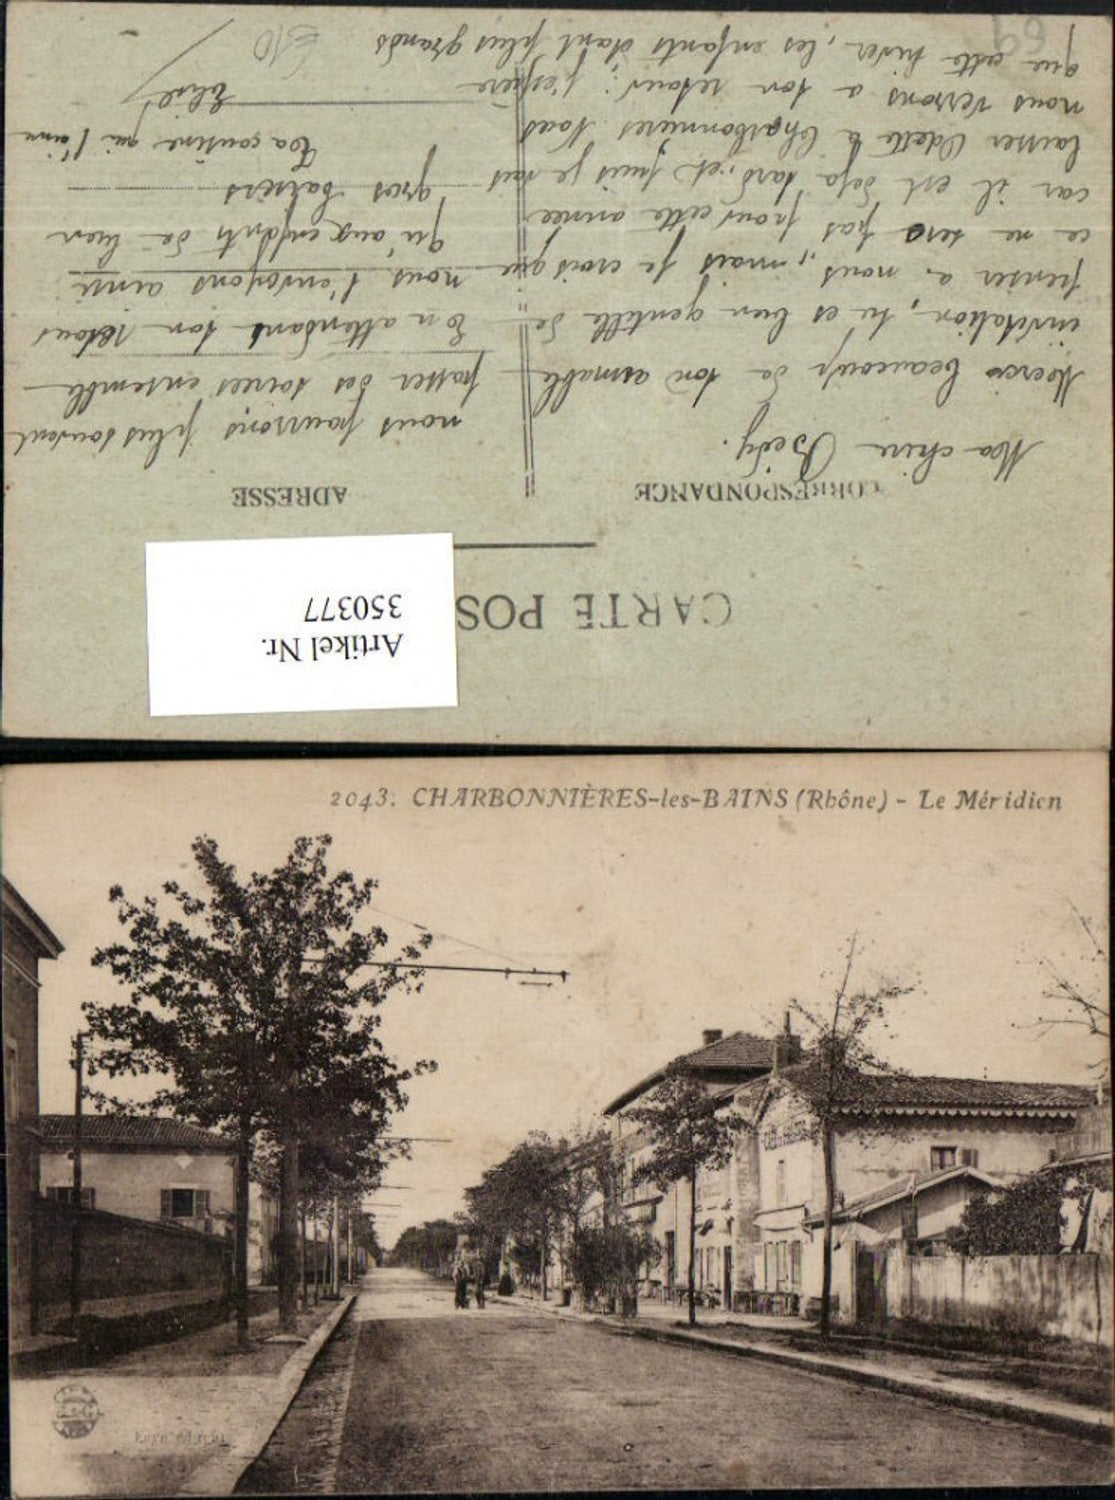 CARTE POS
Artikel Nr.
350377
CORRESPONDANCE
ADRESSE
Ma chère
Merci beaucoup de ton aimable
invitation, tu es bien gentille de
penser a nous, mais je crois que
ce ne sera pas pour cette année
car il est déja tard, et puis je vais
laisser Odette à Charbonnières Nous
nous verrons a ton retour; j'espère
que cette hiver, les enfants étant plus grands
nous pourrons plus souvent
passer des soirées ensemble
En attendant ton retour
nous t'envoyons ainsi
qu'aux enfants de bien
gros baisers
Ta cousine qui t'aime
69
2043. CHARBONNIÈRES-les-BAINS (Rhône) - Le Méridien